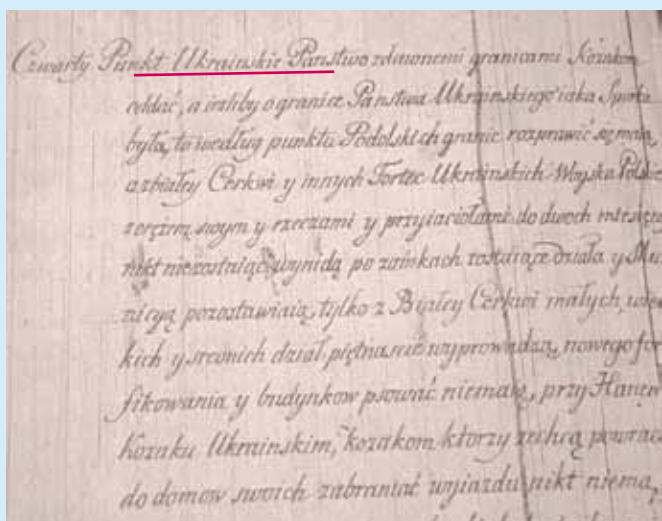 Czwarty Punkt Ukrainskie Panstwo zdawnemi granicami Kozakom
oddać, a ieżliby o granice Panstwa Ukrainskiego iaka Sprzeka
była, to według punktu Podolskich granic rozprawić się maią,
a zbiałey Cerkwi y innych Fortec Ukrainskich Woyska Polskie
zorężem swym y rzeczami y przyiaciołami do dwoch miesięcy
nikt niezostaiąc wynidą po zamkach zostaiące działa y
pozostawiaią, tylko z Białey Cerkwi małych, wiel
kich y srednich dział piętnascie wyprowadzą, nowego for
fikowania y budynkow psować niemaią, przy
Kozaku Ukrainskim, kozakom ktorzy zechcą powraca
do domow swoich zabraniać wyiazdu nikt niema,